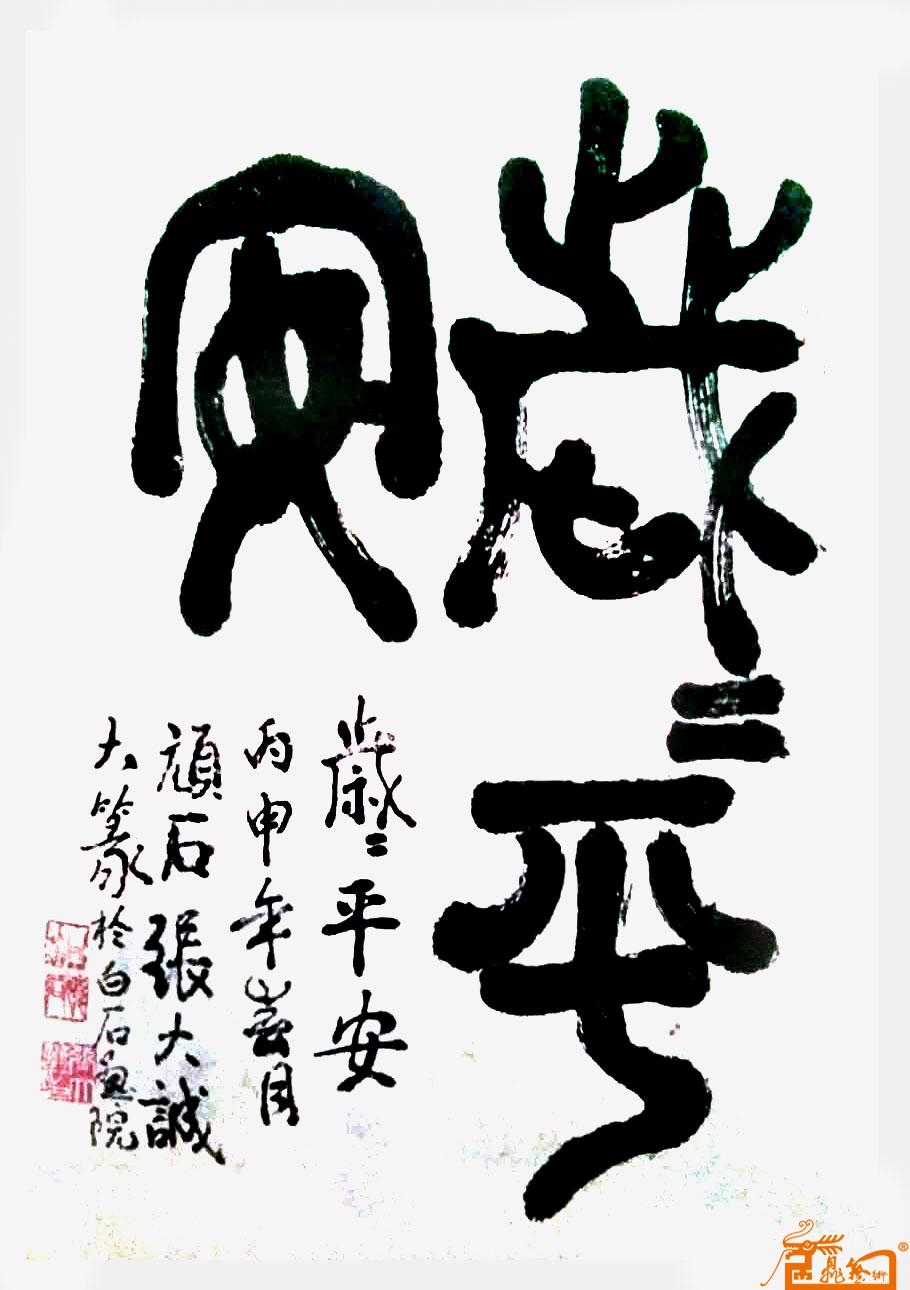 歲二平
安
歲二平安
丙申年春月
頑石張大誠
大篆於白石畫院